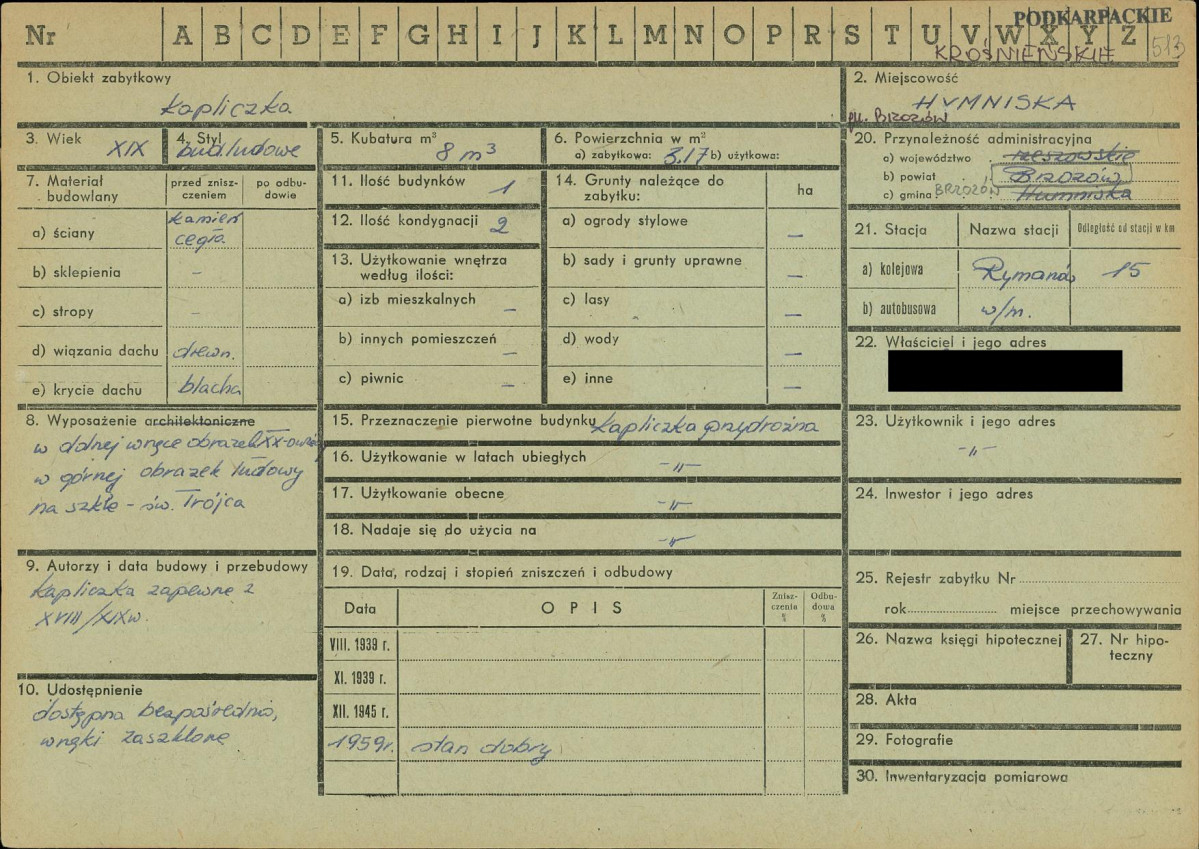 Nr A B C D E F G H I J K L M N O P R S T U V W X Y Z
PODKARPACKIE
KROŚNIEŃSKIE
513
1. Obiekt zabytkowy
kapliczka
2. Miejscowość
HUMNISKA
gm. BRZOZÓW
3. Wiek XIX
4. Styl bud. ludowe
5. Kubatura m³ 8 m³
6. Powierzchnia w m²
a) zabytkowa: 3,17 b) użytkowa:
20. Przynależność administracyjna
a) województwo rzeszowskie
b) powiat Brzozów
c) gmina BRZOZÓW Humniska
7. Materiał budowlany
przed zniszczeniem
po odbudowie
a) ściany kamień
cegła
b) sklepienia –
c) stropy –
d) wiązania dachu drewn.
e) krycie dachu blacha
11. Ilość budynków 1
12. Ilość kondygnacji 2
13. Użytkowanie wnętrza
według ilości:
a) izb mieszkalnych –
b) innych pomieszczeń –
c) piwnic –
14. Grunty należące do
zabytku:
ha
a) ogrody stylowe –
b) sady i grunty uprawne –
c) lasy –
d) wody –
e) inne –
21. Stacja Nazwa stacji Odległość od stacji w km
a) kolejowa Rymanów 15
b) autobusowa w/m.
22. Właściciel i jego adres
8. Wyposażenie architektoniczne
w dolnej wnęce obrazek XX-
w górnej obrazek ludowy
na szkle – św. Trójca
15. Przeznaczenie pierwotne budynku kapliczka przydrożna
16. Użytkowanie w latach ubiegłych -"-
17. Użytkowanie obecne -"-
18. Nadaje się do użycia na -"-
23. Użytkownik i jego adres
-"-
24. Inwestor i jego adres
9. Autorzy i data budowy i przebudowy
kapliczka zapewne z
XVIII/XIXw.
10. Udostępnienie
dostępna bezpośrednio,
wnęki zaszklone
19. Data, rodzaj i stopień zniszczeń i odbudowy
Data OPIS Zniszczenie % Odbudowa %
VIII. 1939 r.
XI. 1939 r.
XII. 1945 r.
1959r. stan dobry
25. Rejestr zabytku Nr
rok miejsce przechowywania
26. Nazwa księgi hipotecznej
27. Nr hipoteczny
28. Akta
29. Fotografie
30. Inwentaryzacja pomiarowa